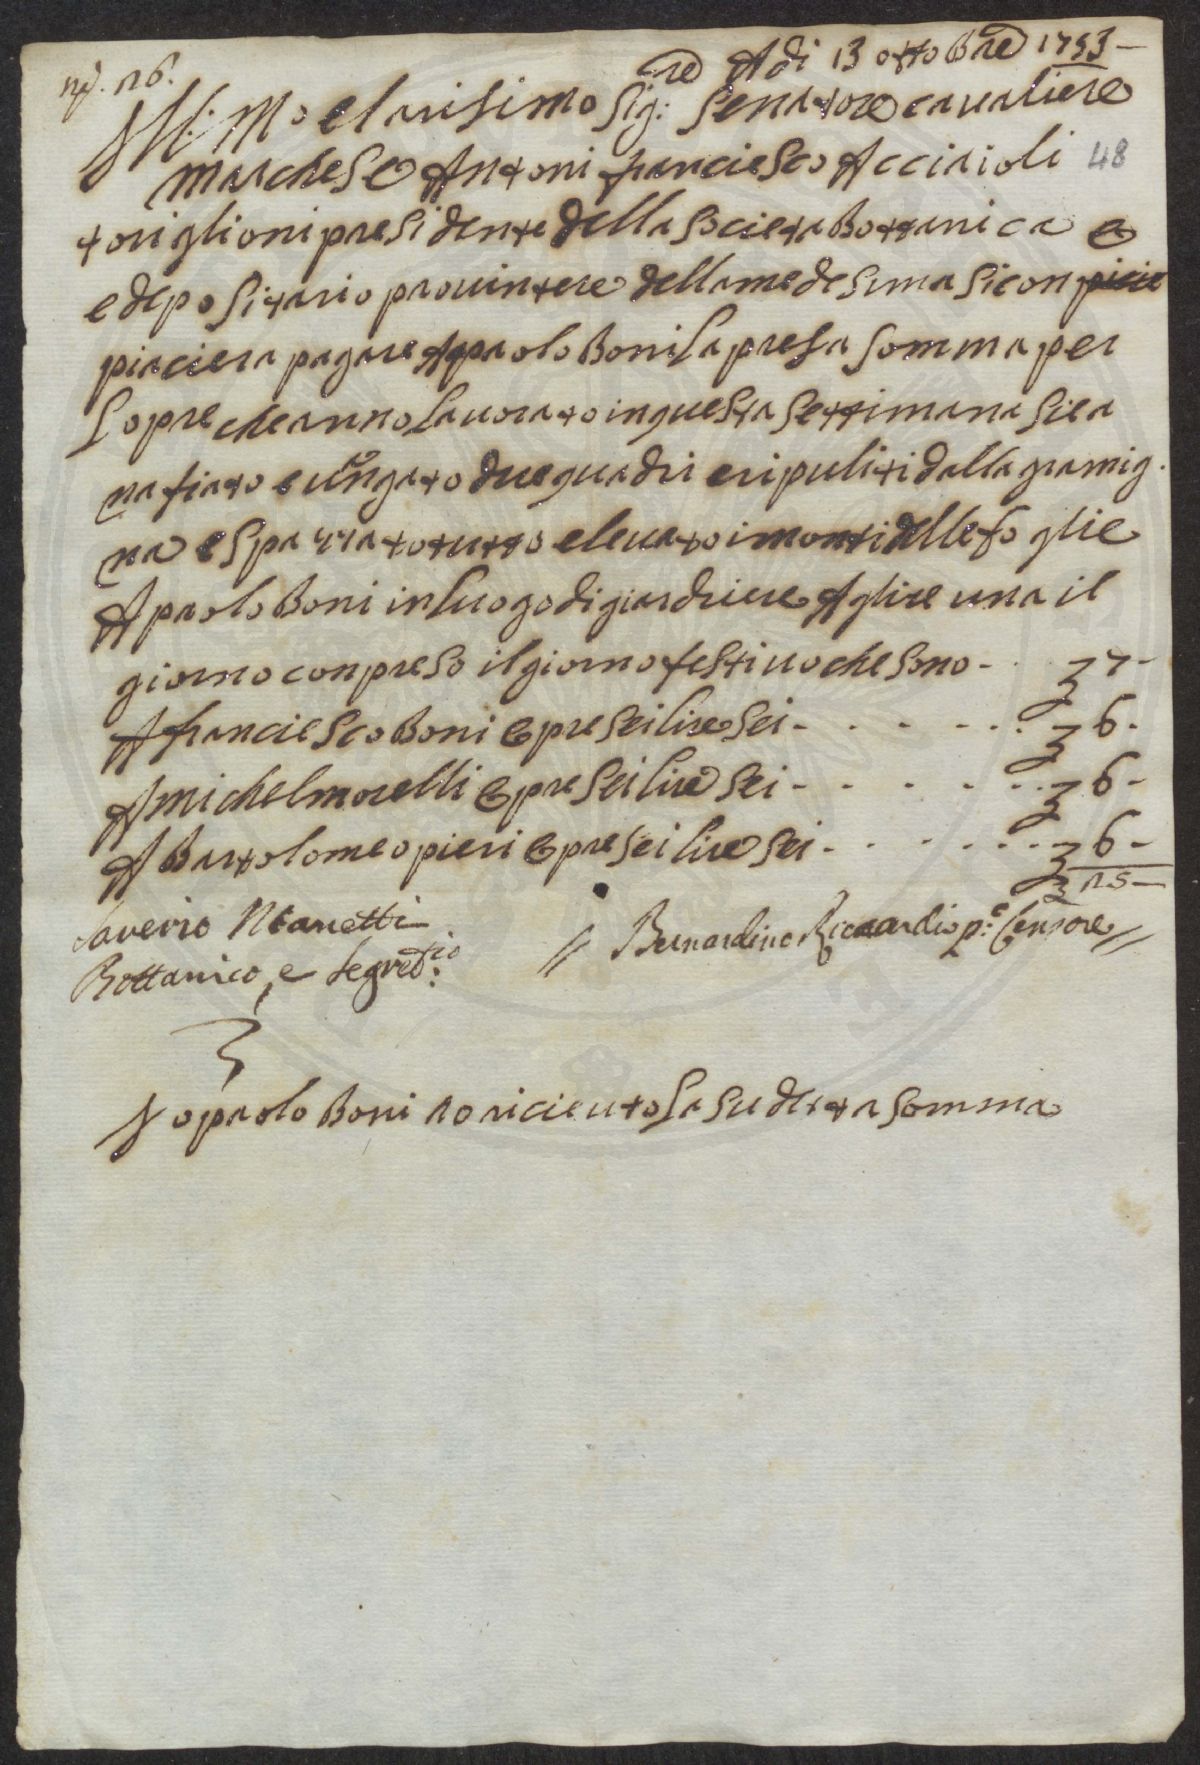 A di 13 ottobre 1753 —
nº. 26.
Ill:Mo e larisimo Sig:re Senatore cavaliere
marchese Antoni franciesco Acciaioli 48
toriglioni presidente della Societa Bottanica e
e depositario provintere della medesima si con
piaciera pagare A paolo Boni la presa somma per
lopre che anno lavorato in questa settimana si ea
nafiato e vangato due quadri e ripuliti dalla gramig
na e spazzato tutto e levato i monti delle foglie
A paolo Boni in luogo di giardiere A lire una il
giorno conpreso il giorno festivo che sono - 7 -
A franciesco Boni Opre sei lire sei - - - - - - 6 -
A michel morelli Opre sei lire sei - - - - - - 6 -
A Bartolomeo pieri Opre sei lire sei - - - - - - 6 -
25 —
Saverio Manetti // Bernardino Riccardi p:e Censore //
Bottanico, e Segret:rio
Io paolo Boni o riceuto la sudetta somma